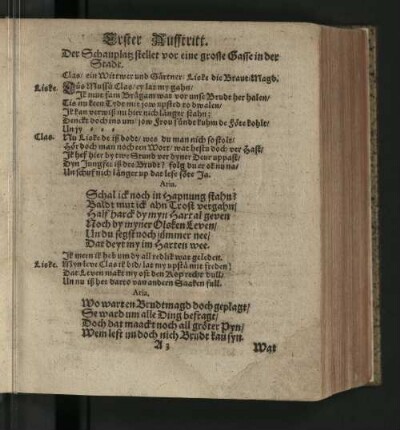 Erster Aufftritt.
Der Schauplatz stellet vor eine grosse Gasse in der
Stade.
Clas/ ein Wittwer und Gärtner/ Liske die Braut-Magd.
Liske. Mussö Clas/ ey lat my gahn/
Ik mut fam Brügam wat vor unse Brudt her halen/
Tis nu keen Tydt mit jow upsted to dwalen/
Ik kan verwiß nu hier nich länger stahn;
Denckt doch ins um/ jow Frou sünd kuhm de Föte kohlt/
Un jy
Clas. Nu Liske de iß dodt; wes du man nich so stolt;
Hör doch man noch een Wort/ wat hestu doch vor Hast/
Ik hef hier by twe Stund vor dyner Deur uppast/
Dyn Jungfer iß dee Brudt? folg du er ok nu na/
Un schuf nich länger up dat lese söte Ja.
Aria.
Schal ick noch in Hapnung stahn?
Baldt mut ick ahn Trost vergahn/
Half haeck dy myn Hart al geven
Noch by myner Oloken Leven/
Un du segst noch jümmer nee/
Dat deyt my im Harten wee.
Ik meen ik heb um dy all redlik wat geleden.
Liske. Myn leve Clas ik bid/ lat my upstä mit freden!
Dat Leven makt my oft den Kop recht dull/
Un nu iß her darto van andern Saaken full.
Aria.
Wo warten Brudtmagd doch geplagt/
Se ward um alle Ding befragt/
Doch dat maackt noch all gröter Pyn/
Wem lest un doch nich Brudt kan syn.
A 3 Wat